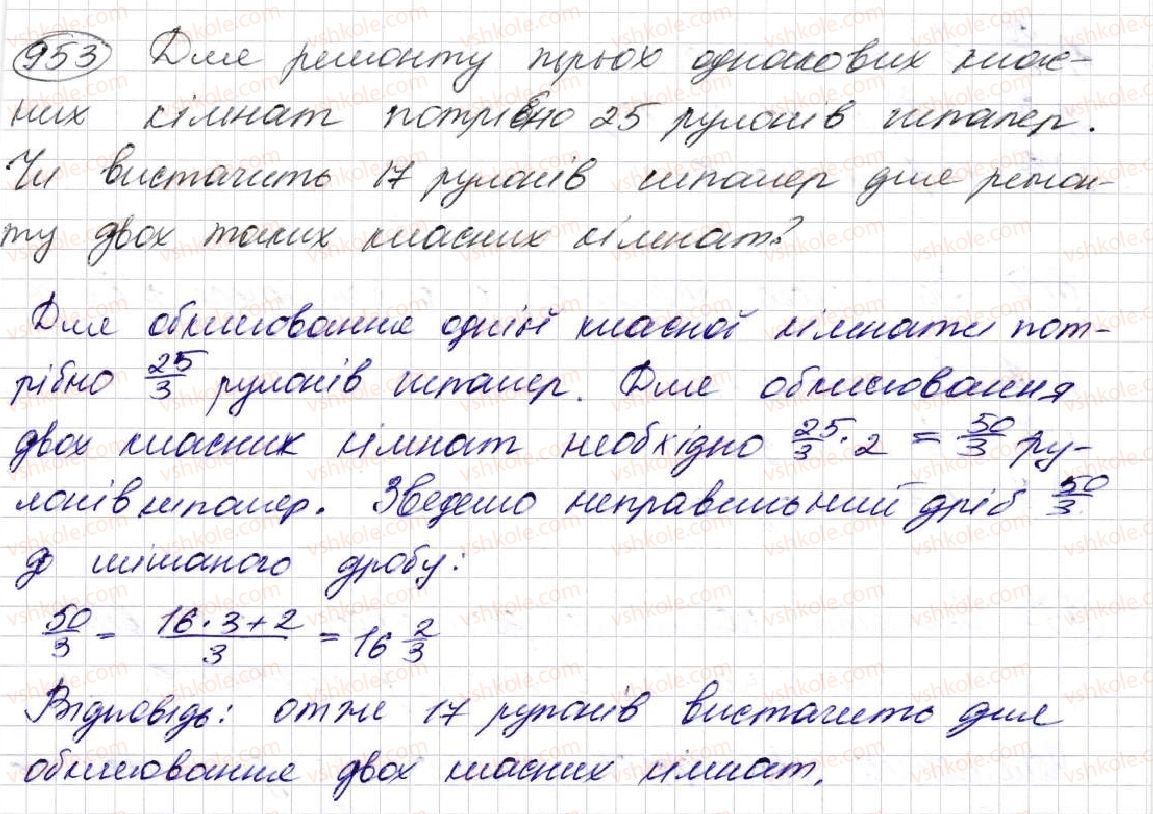 953 Для ремонту трьох однакових клас-
них кімнат потрібно 25 рулонів шпалер.
Чи вистачить 17 рулонів шпалер для ремон-
ту двох таких класних кімнат?
Для обклеювання однієї класної кімнати пот-
рібно 25/3 рулонів шпалер. Для обклеювання
двох класних кімнат необхідно 25/3 · 2 = 50/3 ру-
лонів шпалер. Зведемо неправильний дріб 50/3
до мішаного дробу:
50/3 = (16·3+2)/3 = 16 2/3
Відповідь: отже 17 рулонів вистачить для
обклеювання двох класних кімнат.